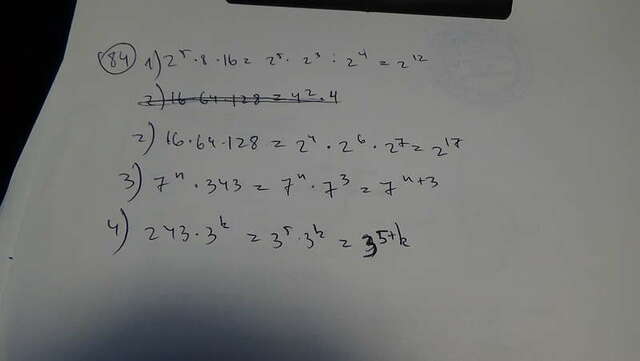 84 1) 2⁵ · 8 · 16 = 2⁵ · 2³ · 2⁴ = 2¹²
2) 16 · 64 · 128 = 4² · 4
2) 16 · 64 · 128 = 2⁴ · 2⁶ · 2⁷ = 2¹⁷
3) 7ⁿ · 343 = 7ⁿ · 7³ = 7ⁿ⁺³
4) 243 · 3ᵏ = 3⁵ · 3ᵏ = 3⁵⁺ᵏ